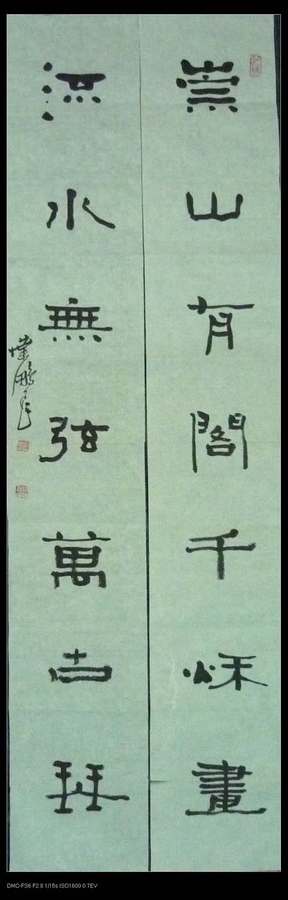 崇山有閣千秋畫
流水無弦萬古琴
DMC-FS6 F2.8 1/15s ISO1600 0.7EV